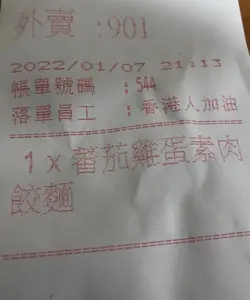 外賣 :901
2022/01/07 21:13
帳單號碼 : 544
落單員工 : 香港人加油
1 x 蕃茄雞蛋素肉
餃麵